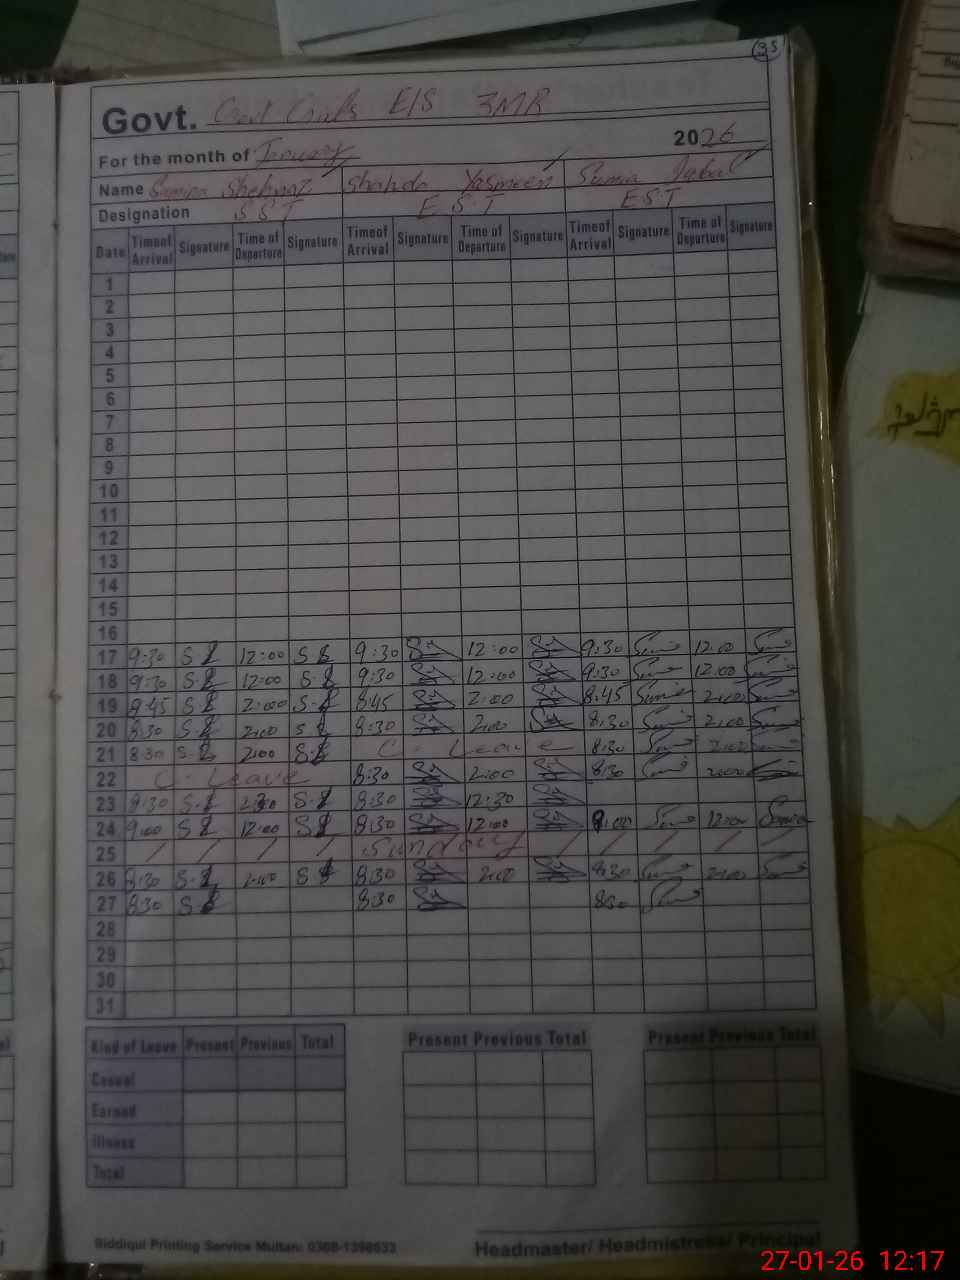 35
Govt. Govt Girls E/S 3MR
2026
For the month of January
Name Sumra Shehnaz Shahida Yasmeen Sumia Iqbal
Designation S.S.T E.S.T E.S.T
Date Time of Arrival Signature Time of Departure Signature Time of Arrival Signature Time of Departure Signature Time of Arrival Signature Time of Departure Signature
1
2
3
4
5
6
7
8
9
10
11
12
13
14
15
16
17 9:30 12:00 9:30 12:00 9:30 12:00
18 9:30 12:00 9:30 12:00 9:30 12:00
19 9:45 2:00 8:45 2:00 8:45 2:00
20 8:30 2:00 8:30 2:00 8:30 2:00
21 8:30 2:00 C - Leave 8:30 2:00
22 C - Leave 8:30 2:00 8:30 2:00
23 8:30 8:30 12:30
24 9:00 12:00 8:30 12:00 9:00 12:00
25 / / / / Sunday / / / / /
26 8:30 2:00 8:30 2:00 8:30 2:00
27 8:30 8:30 8:30
28
29
30
31
Kind of Leave Present Previous Total Present Previous Total Present Previous Total
Casual
Earned
Illness
Total
Siddiqui Printing Service Multan: 0308-1398633
Headmaster/ Headmistress/ Principal
27-01-26 12:17